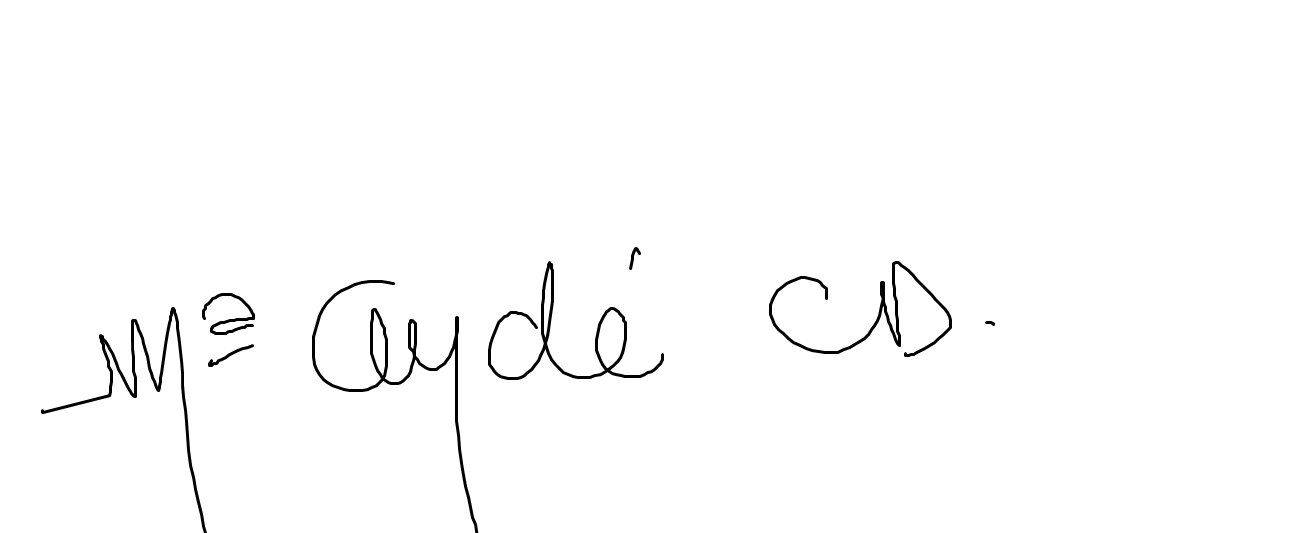 Mª Aydé CD.